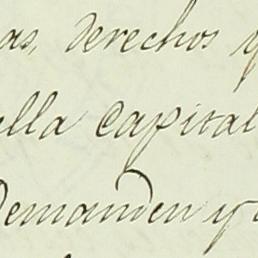 as, derechos y
ella capital
Demanden y